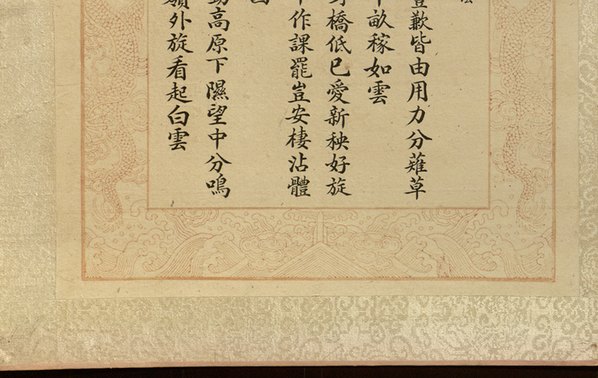 歉皆由用力分薙草
畝稼如雲
橋低已愛新秧好旋
作課罷豈安棲沾體
高原下隰望中分鳴
外旋看起白雲